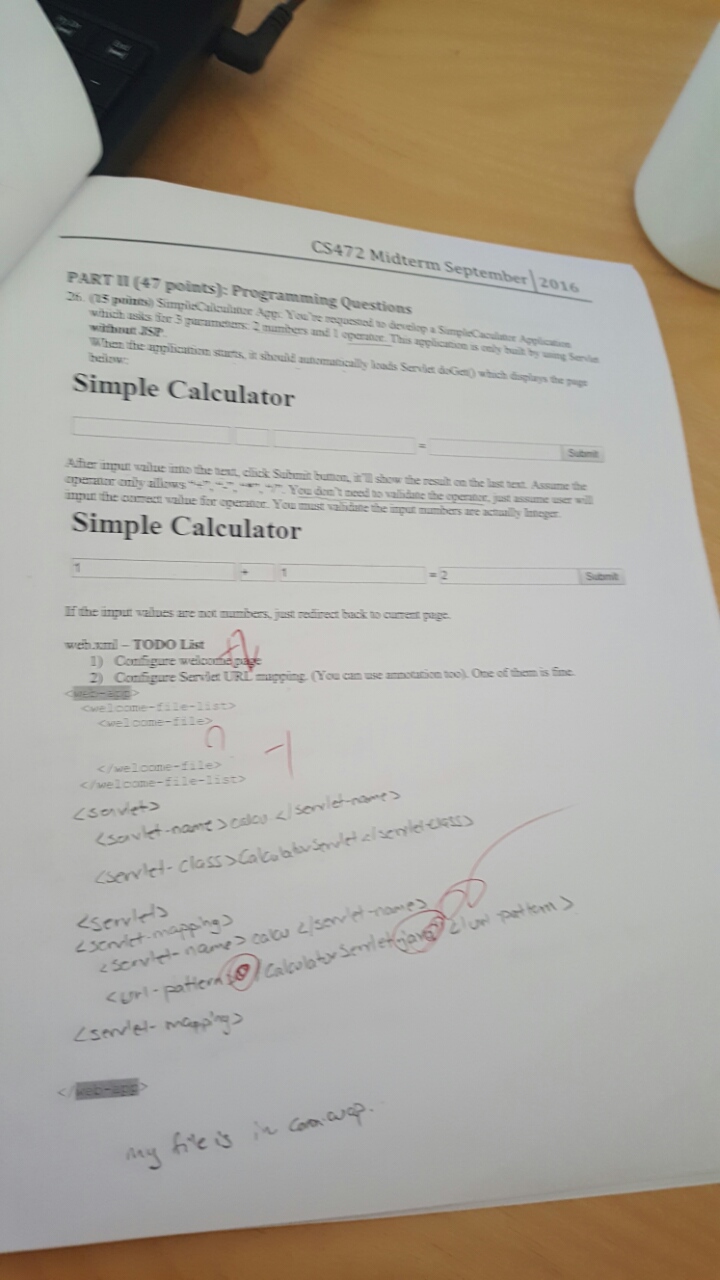 CS472 Midterm September 2016
PART II (47 points): Programming Questions
26. (15 points) SimpleCalculator App: You're requested to develop a SimpleCaculator Application
which asks for 3 parameters: 2 numbers and 1 operator. This application is only built by using Servlet
without JSP.
When the application starts, it should automatically loads Servlet doGet() which displays the page
below:
Simple Calculator
= Submit
After input value into the text, click Submit button, it'll show the result on the last text. Assume the
operator only allows "+", "-", "*", "/". You don't need to validate the operator, just assume user will
input the correct value for operator. You must validate the input numbers are actually Integer.
Simple Calculator
1 + 1 = 2 Submit
If the input values are not numbers, just redirect back to current page.
web.xml – TODO List
1) Configure welcome page
2) Configure Servlet URL mapping. (You can use annotation too). One of them is fine.
<web-app>
<welcome-file-list>
<welcome-file>
-1
</welcome-file>
</welcome-file-list>
<servlet>
<servlet-name>calcu</servlet-name>
<servlet-class>CalculatorServlet</servlet-class>
<servlet>
<servlet-mapping>
<servlet-name>calcu</servlet-name>
<url-pattern> /CalculatorServlet.java</url-pattern>
<servlet-mapping>
</web-app>
my file is in